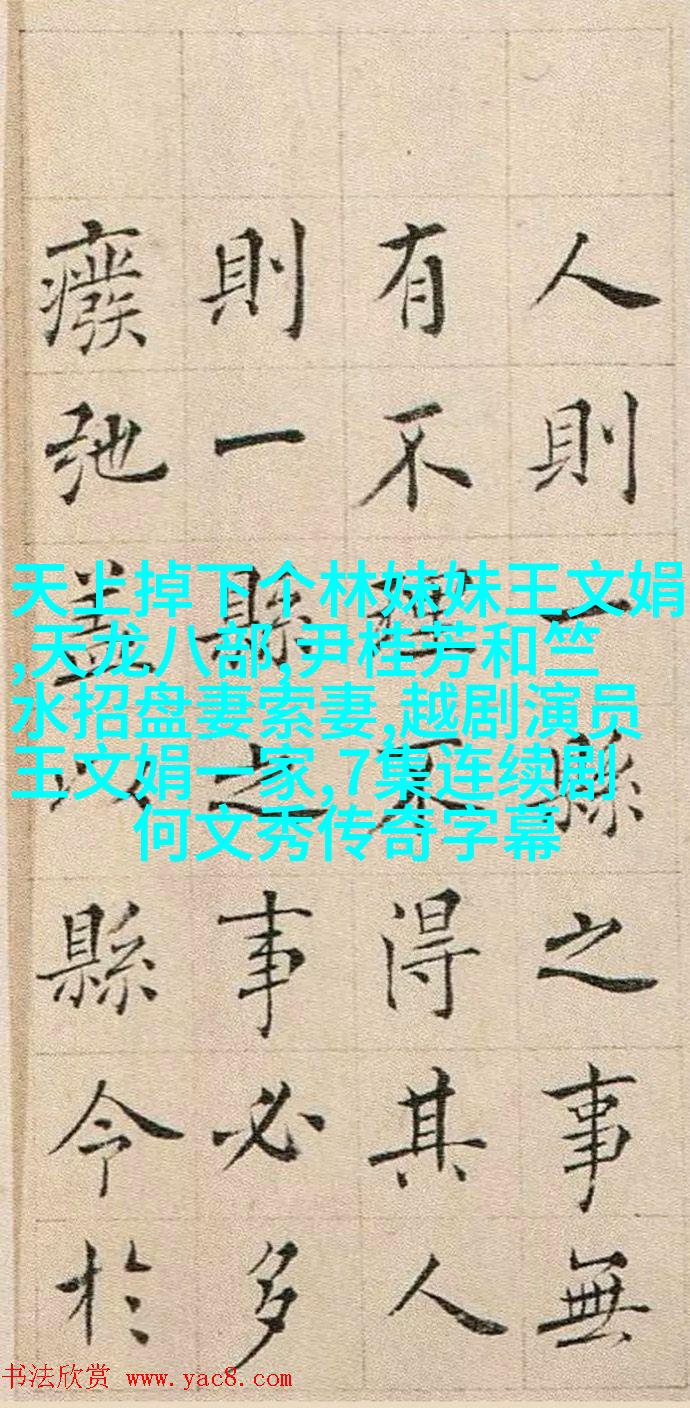 人則一縣之事無
有不理不得其人
則一縣之事必多
癈弛盖以縣令於
天上掉下个林妹妹王文娟
,天龙八部,尹桂芳和竺
水招盘妻索妻,越剧演员
王文娟一家,7集连续剧
何文秀传奇字幕
书法欣赏 www.yac8.com